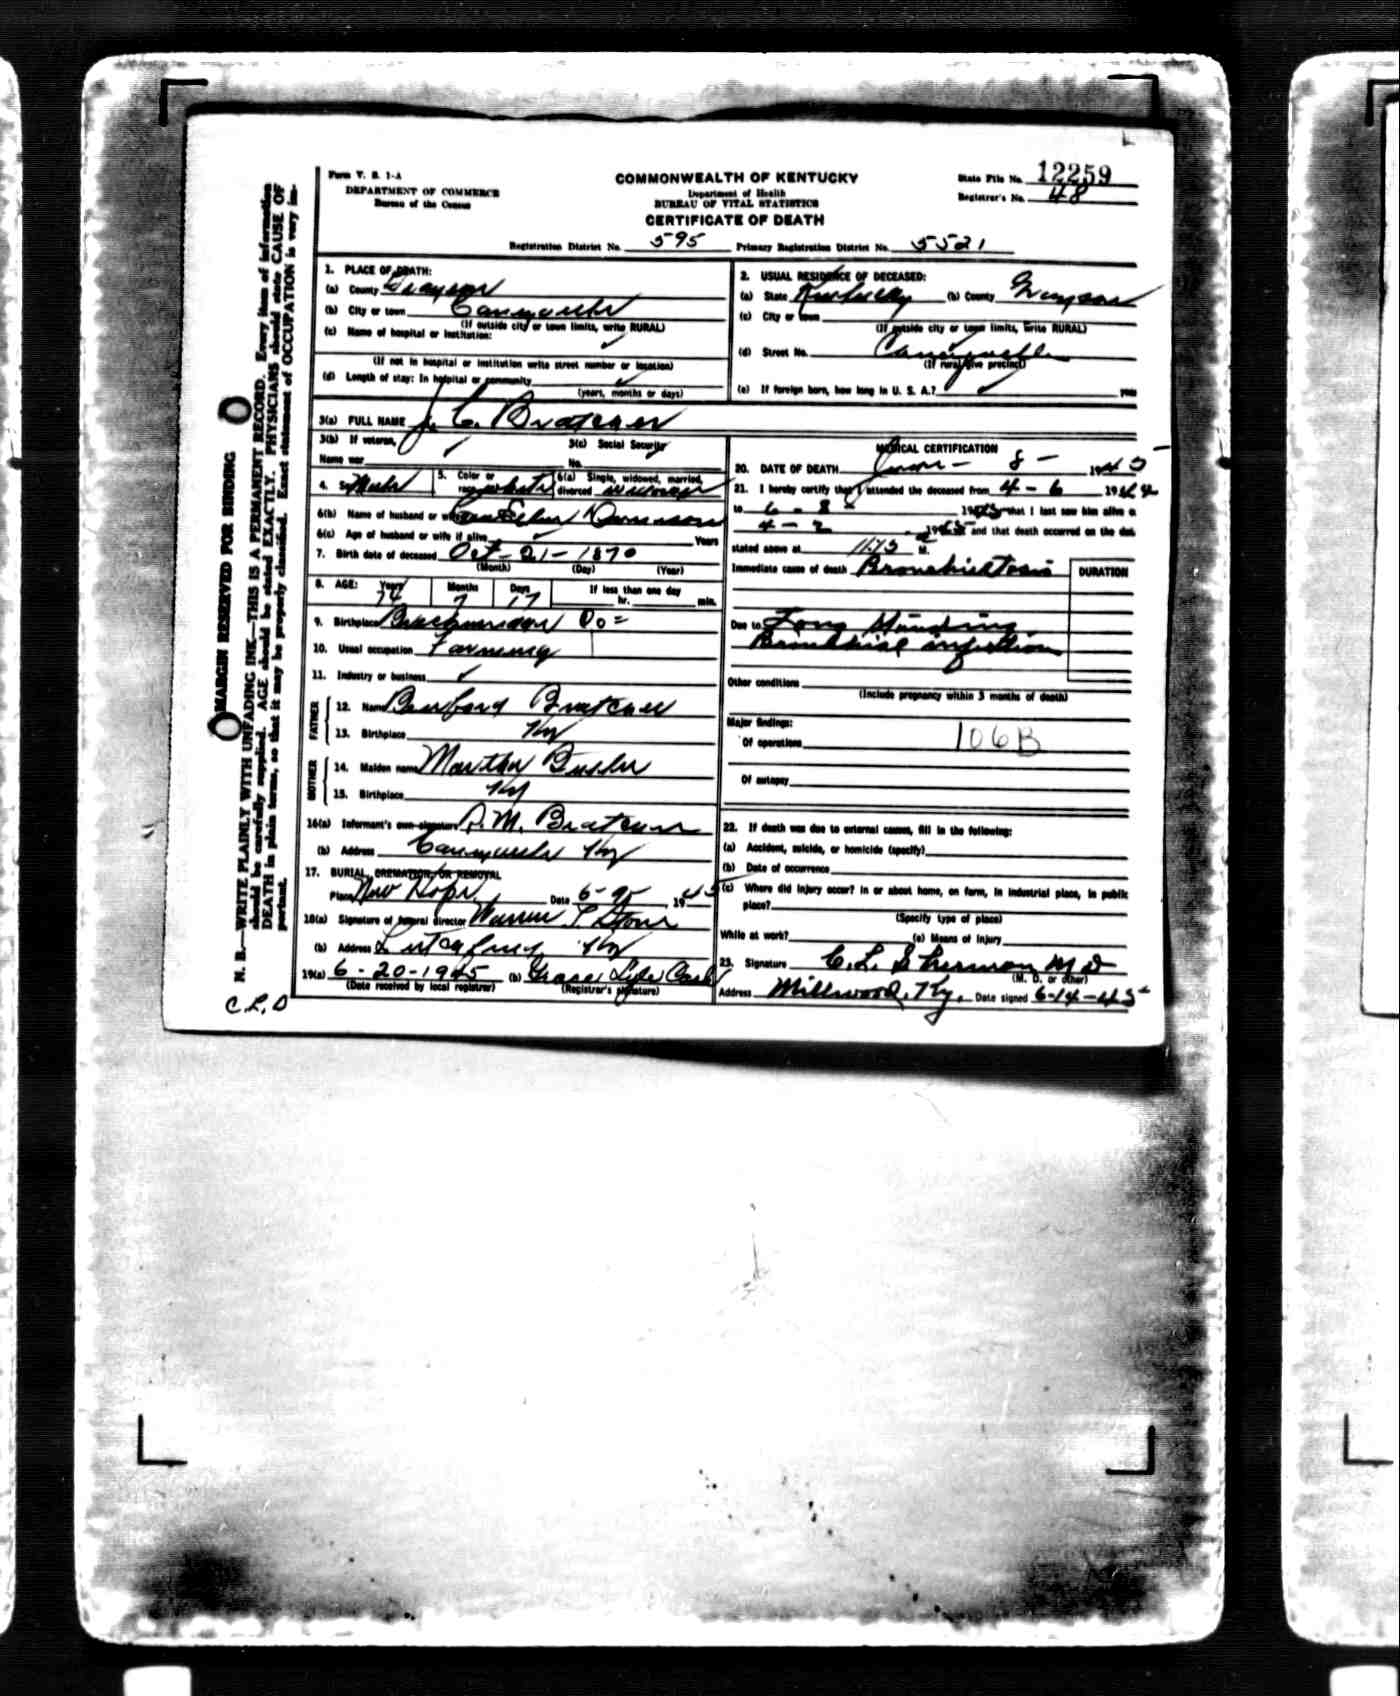 Form V. S. 1-A
DEPARTMENT OF COMMERCE
Bureau of the Census
COMMONWEALTH OF KENTUCKY
Department of Health
BUREAU OF VITAL STATISTICS
CERTIFICATE OF DEATH
State File No. 12259
Registrar's No. 48
Registration District No. 595 Primary Registration District No. 5521
1. PLACE OF DEATH:
(a) County Grayson
(b) City or town
(If outside city or town limits, write RURAL)
(c) Name of hospital or institution:
(If not in hospital or institution write street number or location)
(d) Length of stay: In hospital or community
(years, months or days)
2. USUAL RESIDENCE OF DECEASED:
(a) State Kentucky (b) County Grayson
(c) City or town
(If outside city or town limits, write RURAL)
(d) Street No.
(If rural give precinct)
(e) If foreign born, how long in U. S. A.? years
3(a) FULL NAME J. C. Bratcher
3(b) If veteran,
Name war
3(c) Social Security
No.
4. Sex Male 5. Color or race white 6(a) Single, widowed, married, divorced widower
6(b) Name of husband or wife
6(c) Age of husband or wife if alive Years
7. Birth date of deceased Oct-21-1870
(Month) (Day) (Year)
8. AGE: Years 74 Months 7 Days 17 If less than one day hr. min.
9. Birthplace Co=
10. Usual occupation Farming
11. Industry or business
FATHER
12. Name Bratcher
13. Birthplace Ky
MOTHER
14. Maiden name Martha
15. Birthplace Ky
16(a) Informant's own signature Bratcher
(b) Address Ky
17. BURIAL, CREMATION, OR REMOVAL
Place New Hope Date 6-9 1945
18(a) Signature of funeral director
(b) Address Ky
19(a) 6-20-1945 (b) Grace Lyle Cash
(Date received by local registrar) (Registrar's signature)
MEDICAL CERTIFICATION
20. DATE OF DEATH June- 8- 1945
21. I hereby certify that I attended the deceased from 4-6 19
to 6-8- 19 that I last saw him alive o
4-2 19 and that death occurred on the dat
stated above at M.
Immediate cause of death
DURATION
Due to Long Standing
Bronchial infection
Other conditions
(Include pregnancy within 3 months of death)
Major findings:
Of operations 106B
Of autopsy
22. If death was due to external causes, fill in the following:
(a) Accident, suicide, or homicide (specify)
(b) Date of occurrence
(c) Where did injury occur? In or about home, on farm, in industrial place, in public
place?
(Specify type of place)
While at work? (e) Means of injury
23. Signature C. L. Sherman MD
(M. D. or other)
Address Millwood, Ky. Date signed 6-14-45
MARGIN RESERVED FOR BINDING
N. B.—WRITE PLAINLY WITH UNFADING INK—THIS IS A PERMANENT RECORD. Every item of information
should be carefully supplied. AGE should be stated EXACTLY. PHYSICIANS should state CAUSE OF
DEATH in plain terms, so that it may be properly classified. Exact statement of OCCUPATION is very im-
portant.